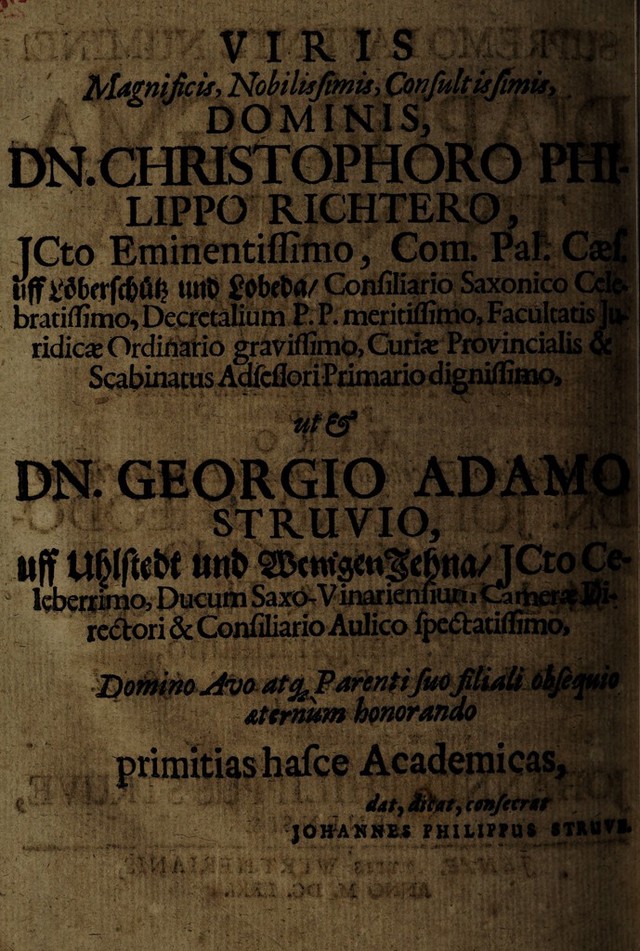 VIRIS
Magnificis, Nobilissimis, Consultissimis,
DOMINIS,
DN. CHRISTOPHORO PHI-
LIPPO RICHTERO,
JCto Eminentiſſimo, Com. Pal. Cæſ.
uff Löberſchütz und Lobeda/ Conſiliario Saxonico Cele-
bratiſſimo, Decretalium P. P. meritiſſimo, Facultatis Ju-
ridicæ Ordinario graviſſimo, Curiæ Provincialis &
Scabinatus Adſeſſori Primario digniſſimo,
ut &
DN. GEORGIO ADAMO
STRUVIO,
uff Uhlſtedt und Wenigen Jehna/ JCto Ce-
leberrimo, Ducum Saxo-Vinarienſium Cameræ Di-
rectori & Conſiliario Aulico ſpectatiſſimo,
Domino Avo atq; Parenti ſuo filiali obſequio
æternùm honorando
primitias haſce Academicas,
dat, dicat, conſecrat
JOHANNES PHILIPPUS STRUVE.